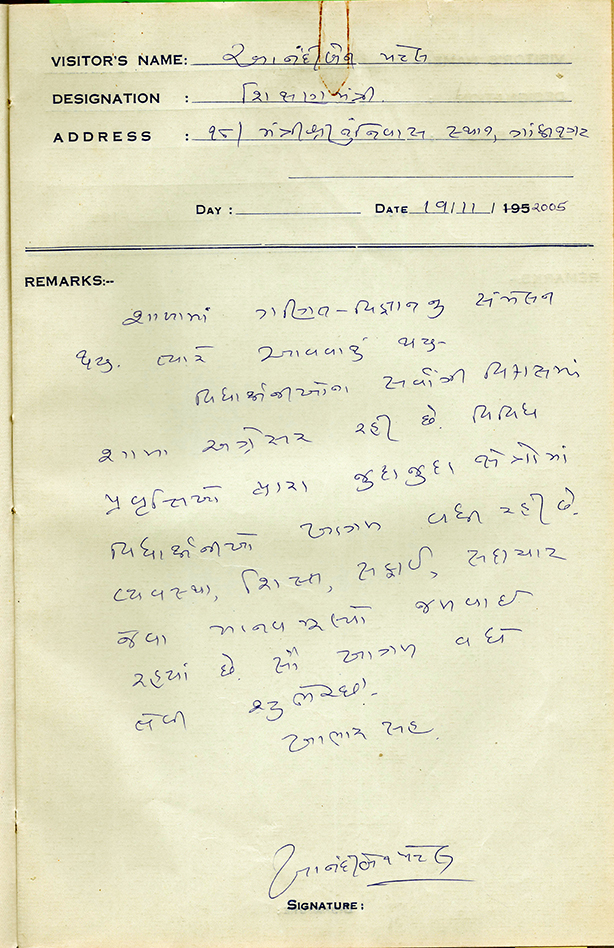 VISITOR'S NAME: આનંદીબેન પટેલ
DESIGNATION : શિક્ષણ મંત્રી.
ADDRESS : ૧૮/ મંત્રીશ્રીનું નિવાસ સ્થાન, ગાંધીનગર
DAY : DATE 19/11/1952005
REMARKS:--
શાળામાં ગણિત-વિજ્ઞાનનું સંમેલન
થયું. ત્યારે આવવાનું થયું-
વિદ્યાર્થીનીઓના સર્વાંગી વિકાસમાં
શાળા અગ્રેસર રહી છે. વિવિધ
પ્રવૃત્તિઓ દ્વારા જુદાજુદા ક્ષેત્રોમાં
વિદ્યાર્થીનીઓ આગળ વધી રહી છે.
વ્યવસ્થા, શિસ્ત, સફાઈ, સદાચાર
જેવા માનવ મૂલ્યો જળવાઈ
રહ્યાં છે. સૌ આગળ વધે
તેવી શુભેચ્છા.
આભાર સહ.
આનંદીબેન પટેલ
SIGNATURE: